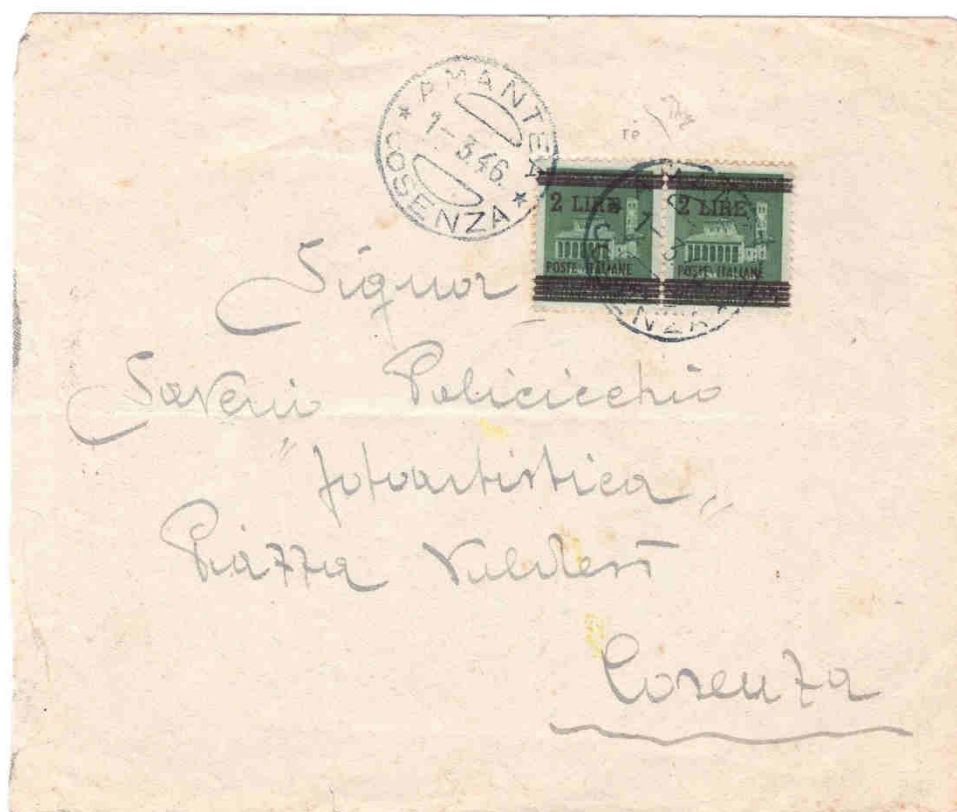 AMANTEA
1-3.46.
* COSENZA *
2 LIRE 2 LIRE
POSTE ITALIANE POSTE ITALIANE
Signor
Saverio Policicchio
"fotoartistica"
Piazza Valdesi
Cosenza